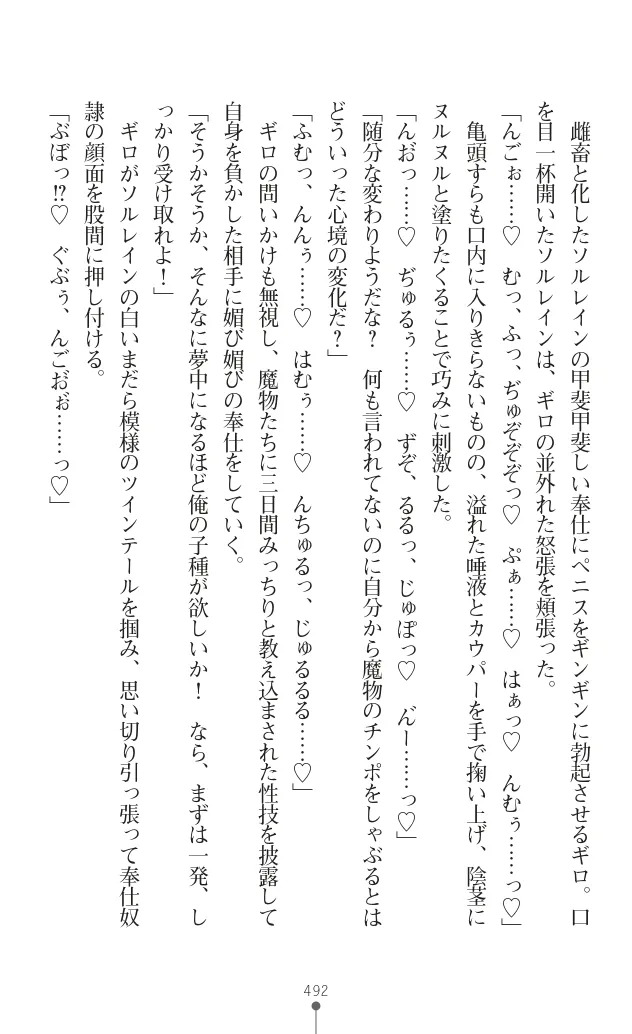 雌畜と化したソルレインの甲斐甲斐しい奉仕にペニスをギンギンに勃起させるギロ。口
を目一杯開いたソルレインは、ギロの並外れた怒張を頬張った。
「んごぉ……♡　むっ、ふっ、ぢゅぞぞぞっ♡　ぷぁ……♡　はぁっ♡　んむぅ……っ♡」
　亀頭すらも口内に入りきらないものの、溢れた唾液とカウパーを手で掬い上げ、陰茎に
ヌルヌルと塗りたくることで巧みに刺激した。
「んおっ……♡　ぢゅるぅ……♡　ずぞ、るるっ、じゅぽっ♡　んー……っ♡」
「随分な変わりようだな？　何も言われてないのに自分から魔物のチンポをしゃぶるとは
どういった心境の変化だ？」
「ふむっ、んんぅ……♡　はむぅ……♡　んちゅるっ、じゅるるる……♡」
　ギロの問いかけも無視し、魔物たちに三日間みっちりと教え込まされた性技を披露して
自身を負かした相手に媚び媚びの奉仕をしていく。
「そうかそうか、そんなに夢中になるほど俺の子種が欲しいか！　なら、まずは一発、し
っかり受け取れよ！」
　ギロがソルレインの白いまだら模様のツインテールを掴み、思い切り引っ張って奉仕奴
隷の顔面を股間に押し付ける。
「ぶぼっ!?♡　ぐぶぅ、んごおぉ……っ♡」
492